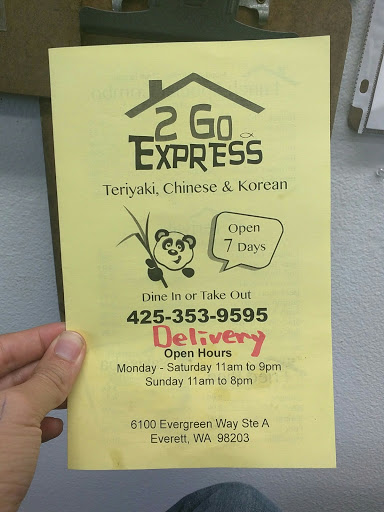 2 Go
EXPRESS
Teriyaki, Chinese & Korean
Open
7 Days
Dine In or Take Out
425-353-9595
Delivery
Open Hours
Monday - Saturday 11am to 9pm
Sunday 11am to 8pm
6100 Evergreen Way Ste A
Everett, WA 98203